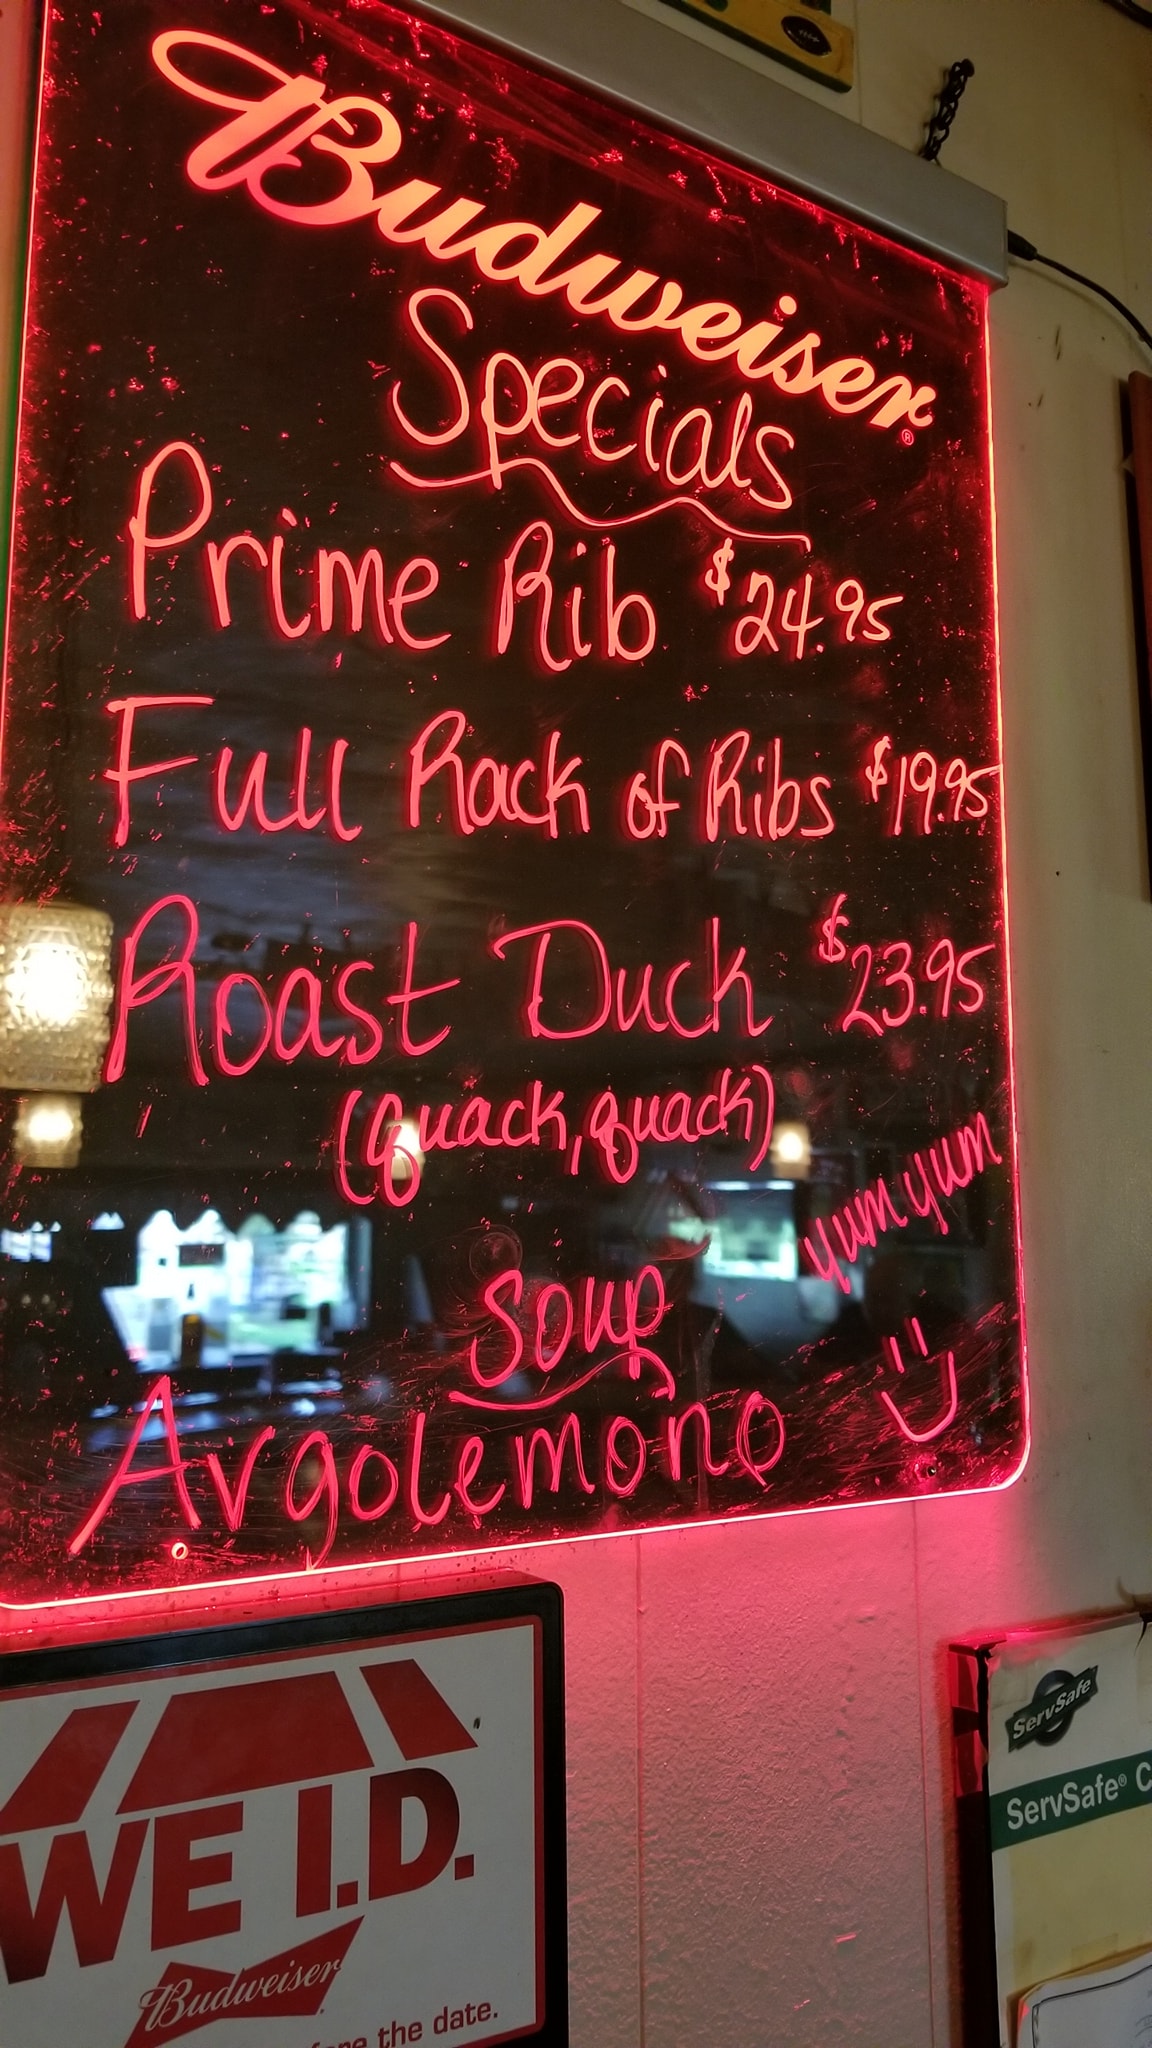 Budweiser®
Specials
Prime Rib $24.95
Full Rack of Ribs $19.95
Roast Duck $23.95
(quack, quack)
yum yum
Soup
Avgolemono
WE I.D.
Budweiser
the date.
ServSafe
ServSafe® C